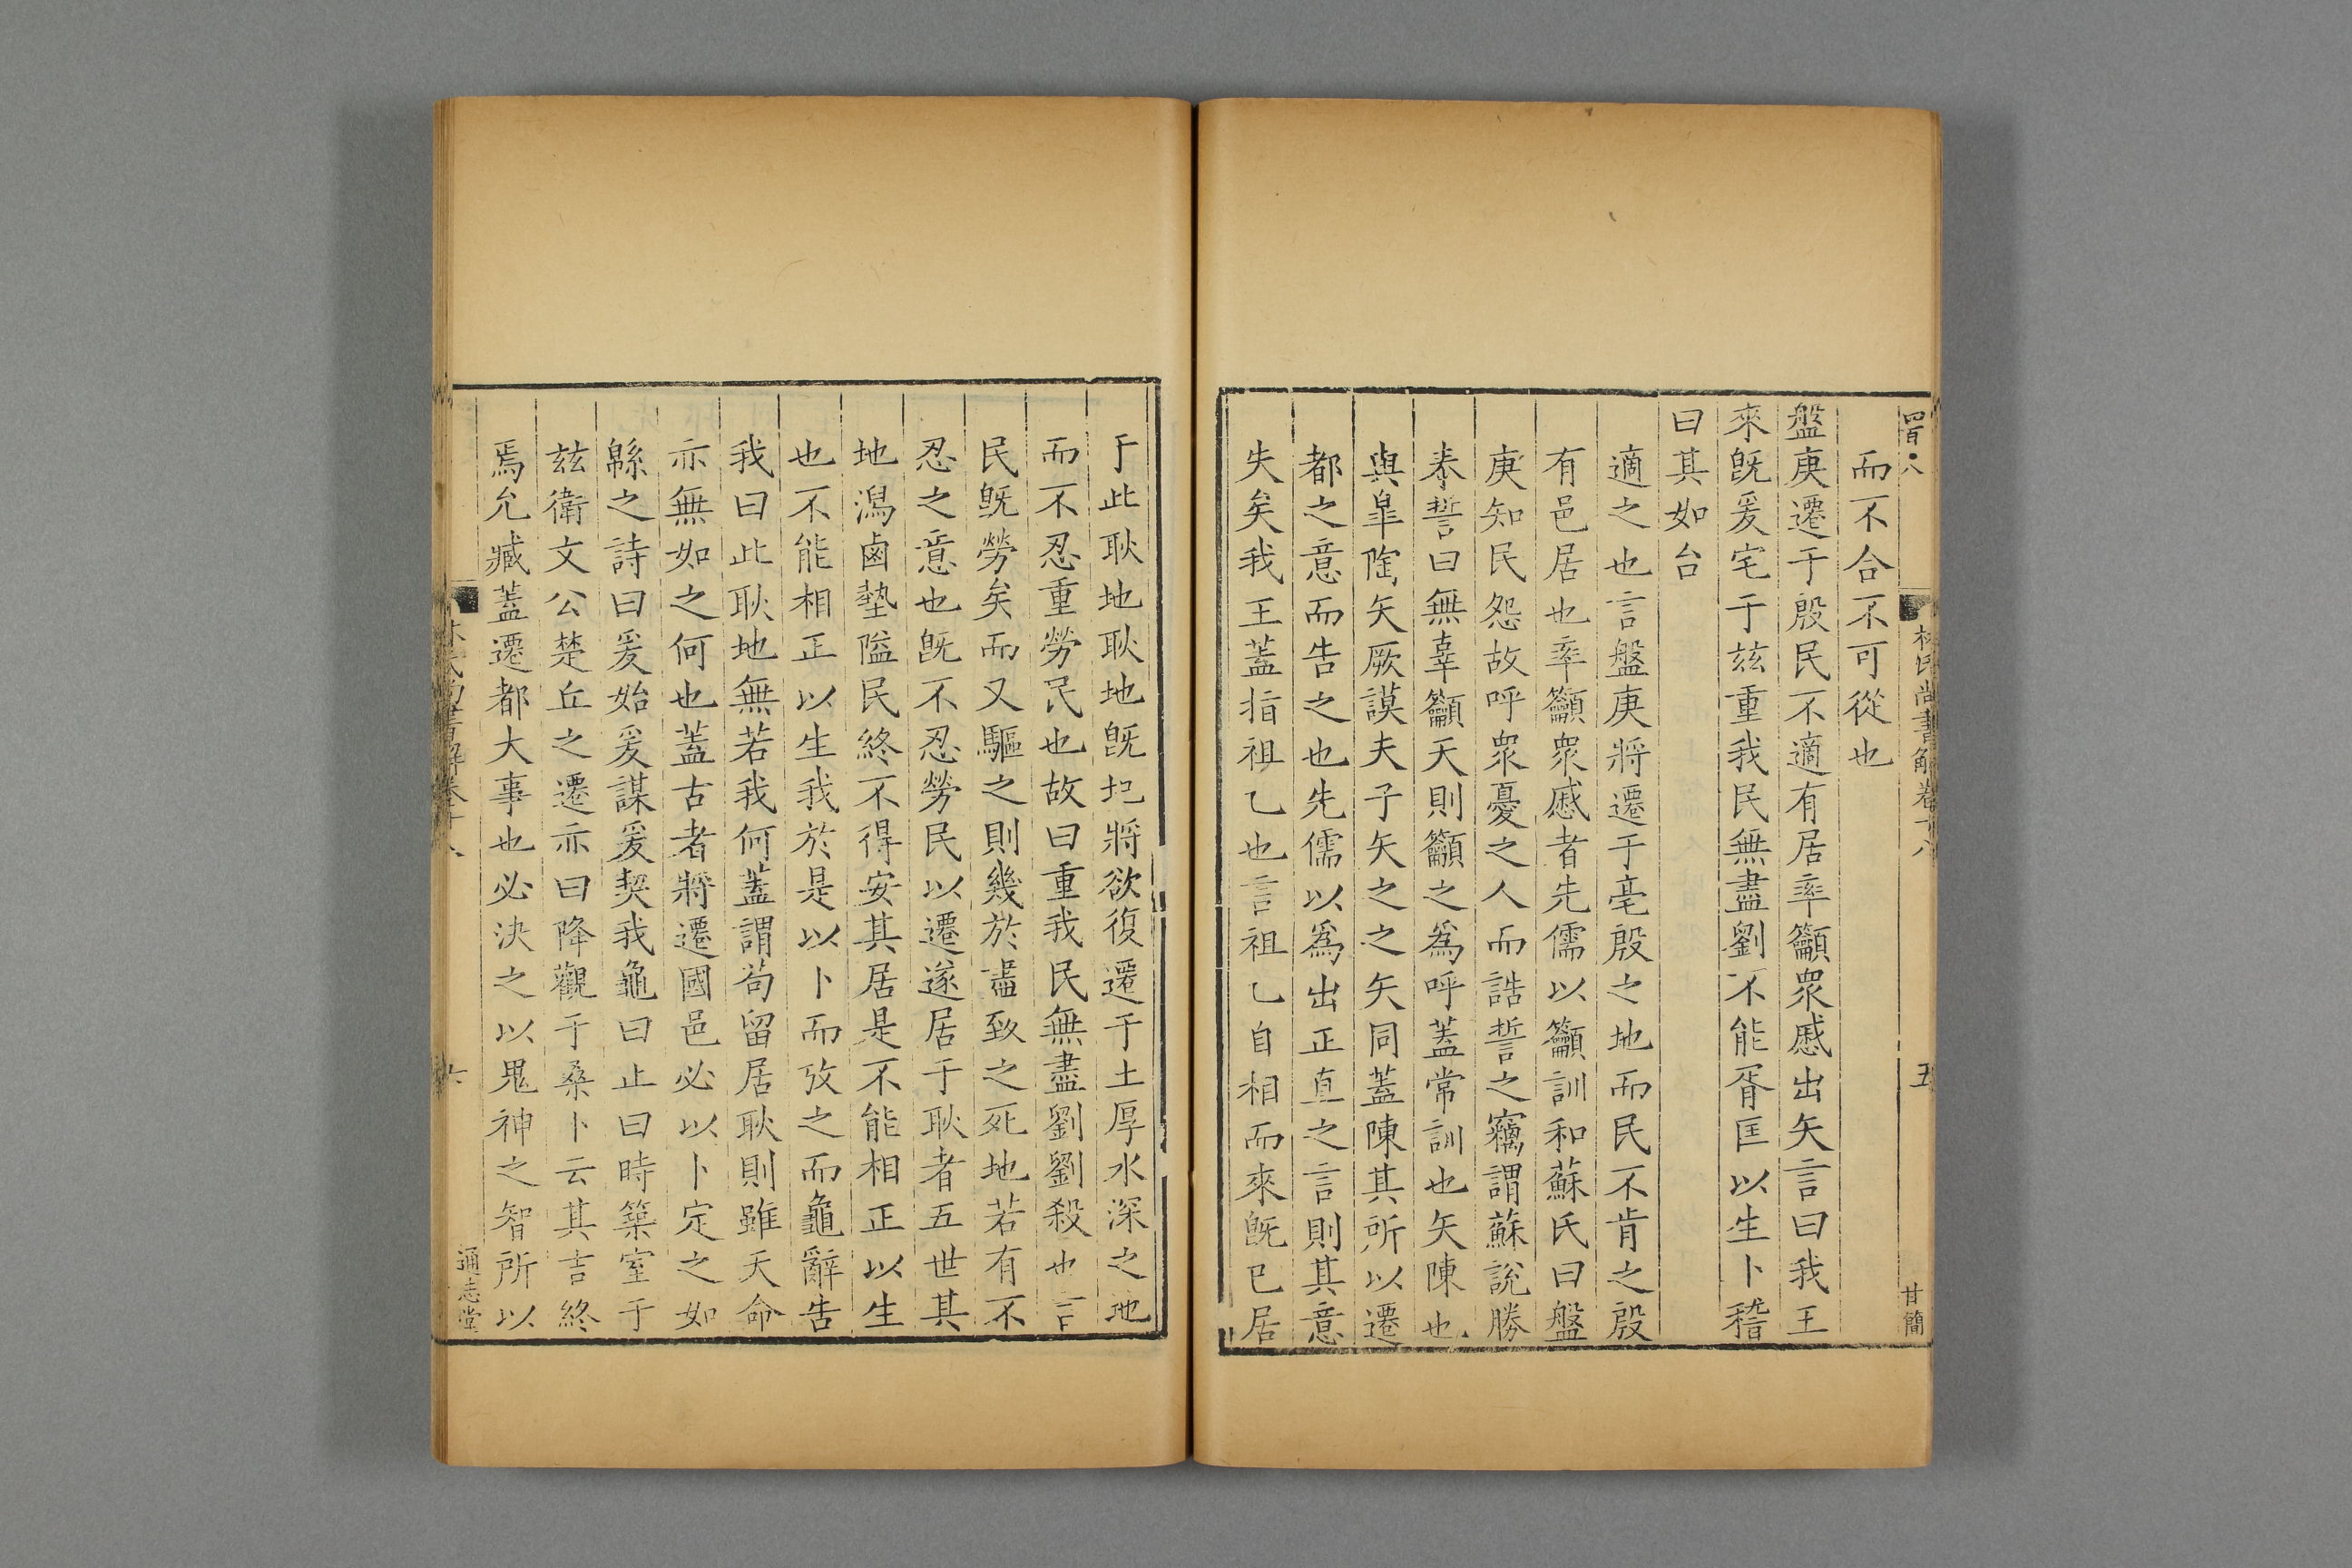 四百八
林氏尚書解卷十八
五
甘簡
而不合不可從也
盤庚遷于殷民不適有居率籲衆慼出矢言曰我王
來既爰宅于玆重我民無盡劉不能胥匡以生卜稽
曰其如台
適之也言盤庚將遷于亳殷之地而民不肯之殷
有邑居也率籲衆慼者先儒以籲訓和蘇氏曰盤
庚知民怨故呼衆憂之人而誥誓之竊謂蘇說勝
泰誓曰無辜籲天則籲之爲呼蓋常訓也矢陳也
與皐陶矢厥謨夫子矢之之矢同蓋陳其所以遷
都之意而告之也先儒以爲出正直之言則其意
失矣我王蓋指祖乙也言祖乙自相而來既已居
于此耿地耿地既圮將欲復遷于土厚水深之地
而不忍重勞民也故曰重我民無盡劉劉殺也言
民既勞矣而又驅之則幾於盡致之死地若有不
忍之意也既不忍勞民以遷遂居于耿者五世其
地潟鹵墊隘民終不得安其居是不能相正以生
也不能相正以生我於是以卜而攷之而龜辭告
我曰此耿地無若我何蓋謂苟留居耿則雖天命
亦無如之何也蓋古者將遷國邑必以卜定之如
緜之詩曰爰始爰謀爰契我龜曰止曰時築室于
玆衛文公楚丘之遷亦曰降觀于桑卜云其吉終
焉允臧蓋遷都大事也必決之以鬼神之智所以
林氏尚書解卷十八
六
通志堂